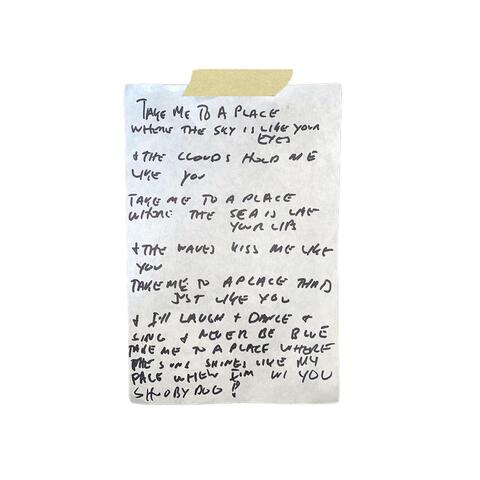 TAKE ME TO A PLACE
WHERE THE SKY IS LIKE YOUR
EYES
& THE CLOUDS HOLD ME
LIKE YOU
TAKE ME TO A PLACE
WHERE THE SEA IS LIKE
YOUR LIPS
& THE WAVES KISS ME LIKE
YOU
TAKE ME TO A PLACE THATS
JUST LIKE YOU
& I'll LAUGH & DANCE &
SING & NEVER BE BLUE
TAKE ME TO A PLACE WHERE
THE SUNS SHINES LIKE MY
FACE WHEN I'M WI YOU
SHOOBYDOO !